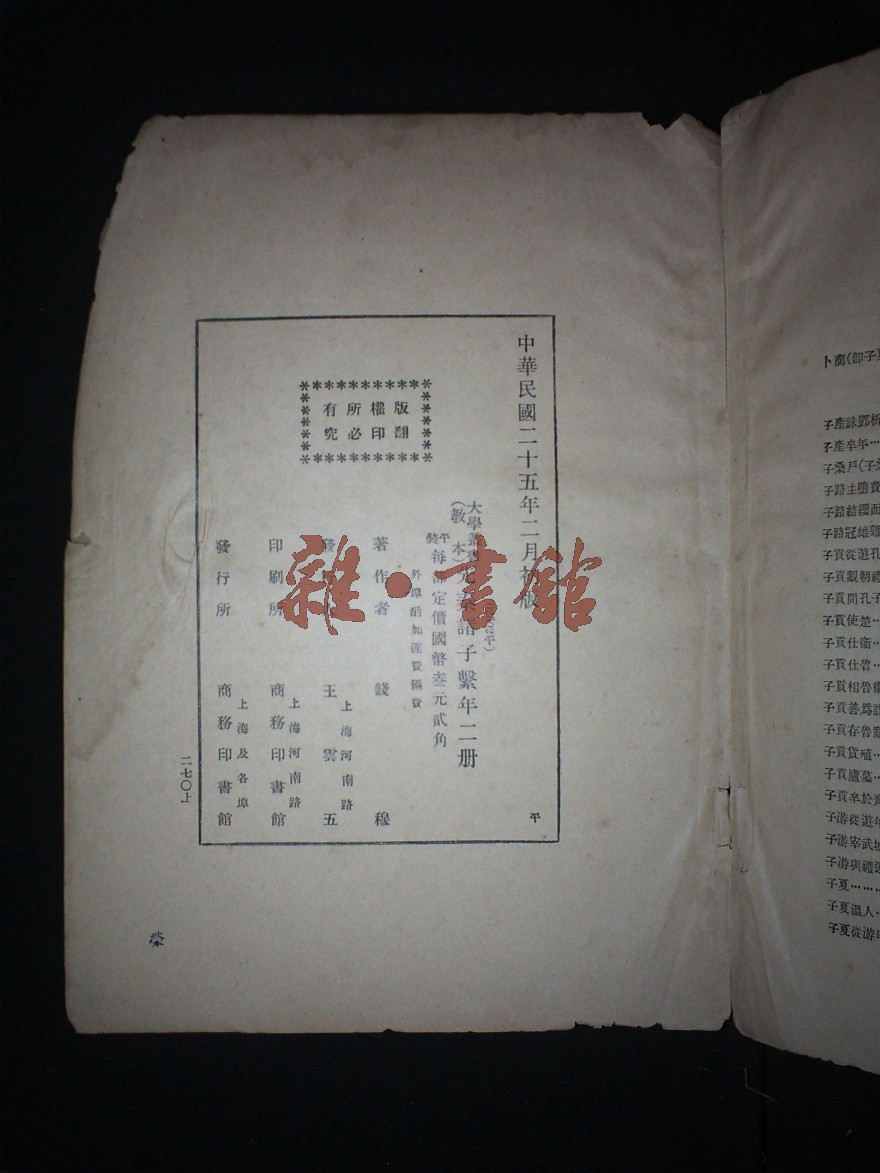 中華民國二十五年二月初版
大學叢書
(教本)
先秦諸子繫年二册
平裝
每部定價國幣叁元貳角
外埠酌加運費匯費
版權所有
翻印必究
著作者 錢穆
發行人 王雲五
上海河南路
印刷所 商務印書館
上海河南路
發行所 商務印書館
上海及各埠
平
二七〇上
榮
雜·書館
子產誅鄧析
子產卒年…
子路主墮費
子路結纓而
子路冠雄雞
子貢從遊孔
子貢觀朝禮
子貢問孔子
子貢使楚…
子貢仕衞…
子貢仕魯…
子貢相魯衞
子貢善爲說
子貢存魯
子貢貨殖…
子貢廬墓…
子貢卒於
子游從遊年
子游宰武城
子游與禮運
子夏……
子夏溫人…
子夏從游